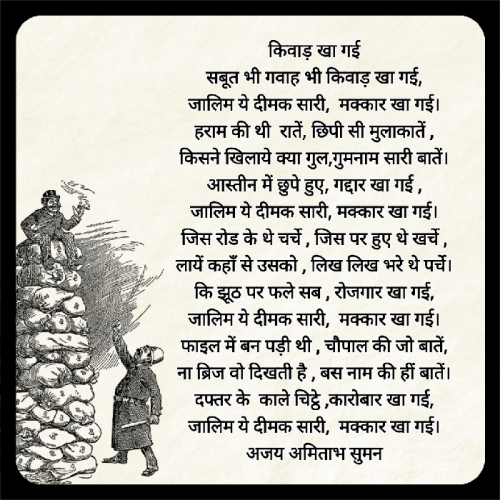 किवाड़ खा गई
सबूत भी गवाह भी किवाड़ खा गई,
जालिम ये दीमक सारी,  मक्कार खा गई।
हराम की थी  रातें, छिपी सी मुलाकातें ,
किसने खिलाये क्या गुल,गुमनाम सारी बातें।
आस्तीन में छुपे हुए, गद्दार खा गई ,
जालिम ये दीमक सारी, मक्कार खा गई।
जिस रोड के थे चर्चे , जिस पर हुए थे खर्चे ,
लायें कहाँ से उसको , लिख लिख भरे थे पर्चे।
कि झूठ पर फले सब , रोजगार खा गई,
जालिम ये दीमक सारी,  मक्कार खा गई।
फाइल में बन पड़ी थी , चौपाल की जो बातें,
ना ब्रिज वो दिखती है , बस नाम की हीं बातें।
दफ्तर के  काले चिट्ठे ,कारोबार खा गई,
जालिम ये दीमक सारी,  मक्कार खा गई।
अजय अमिताभ सुमन